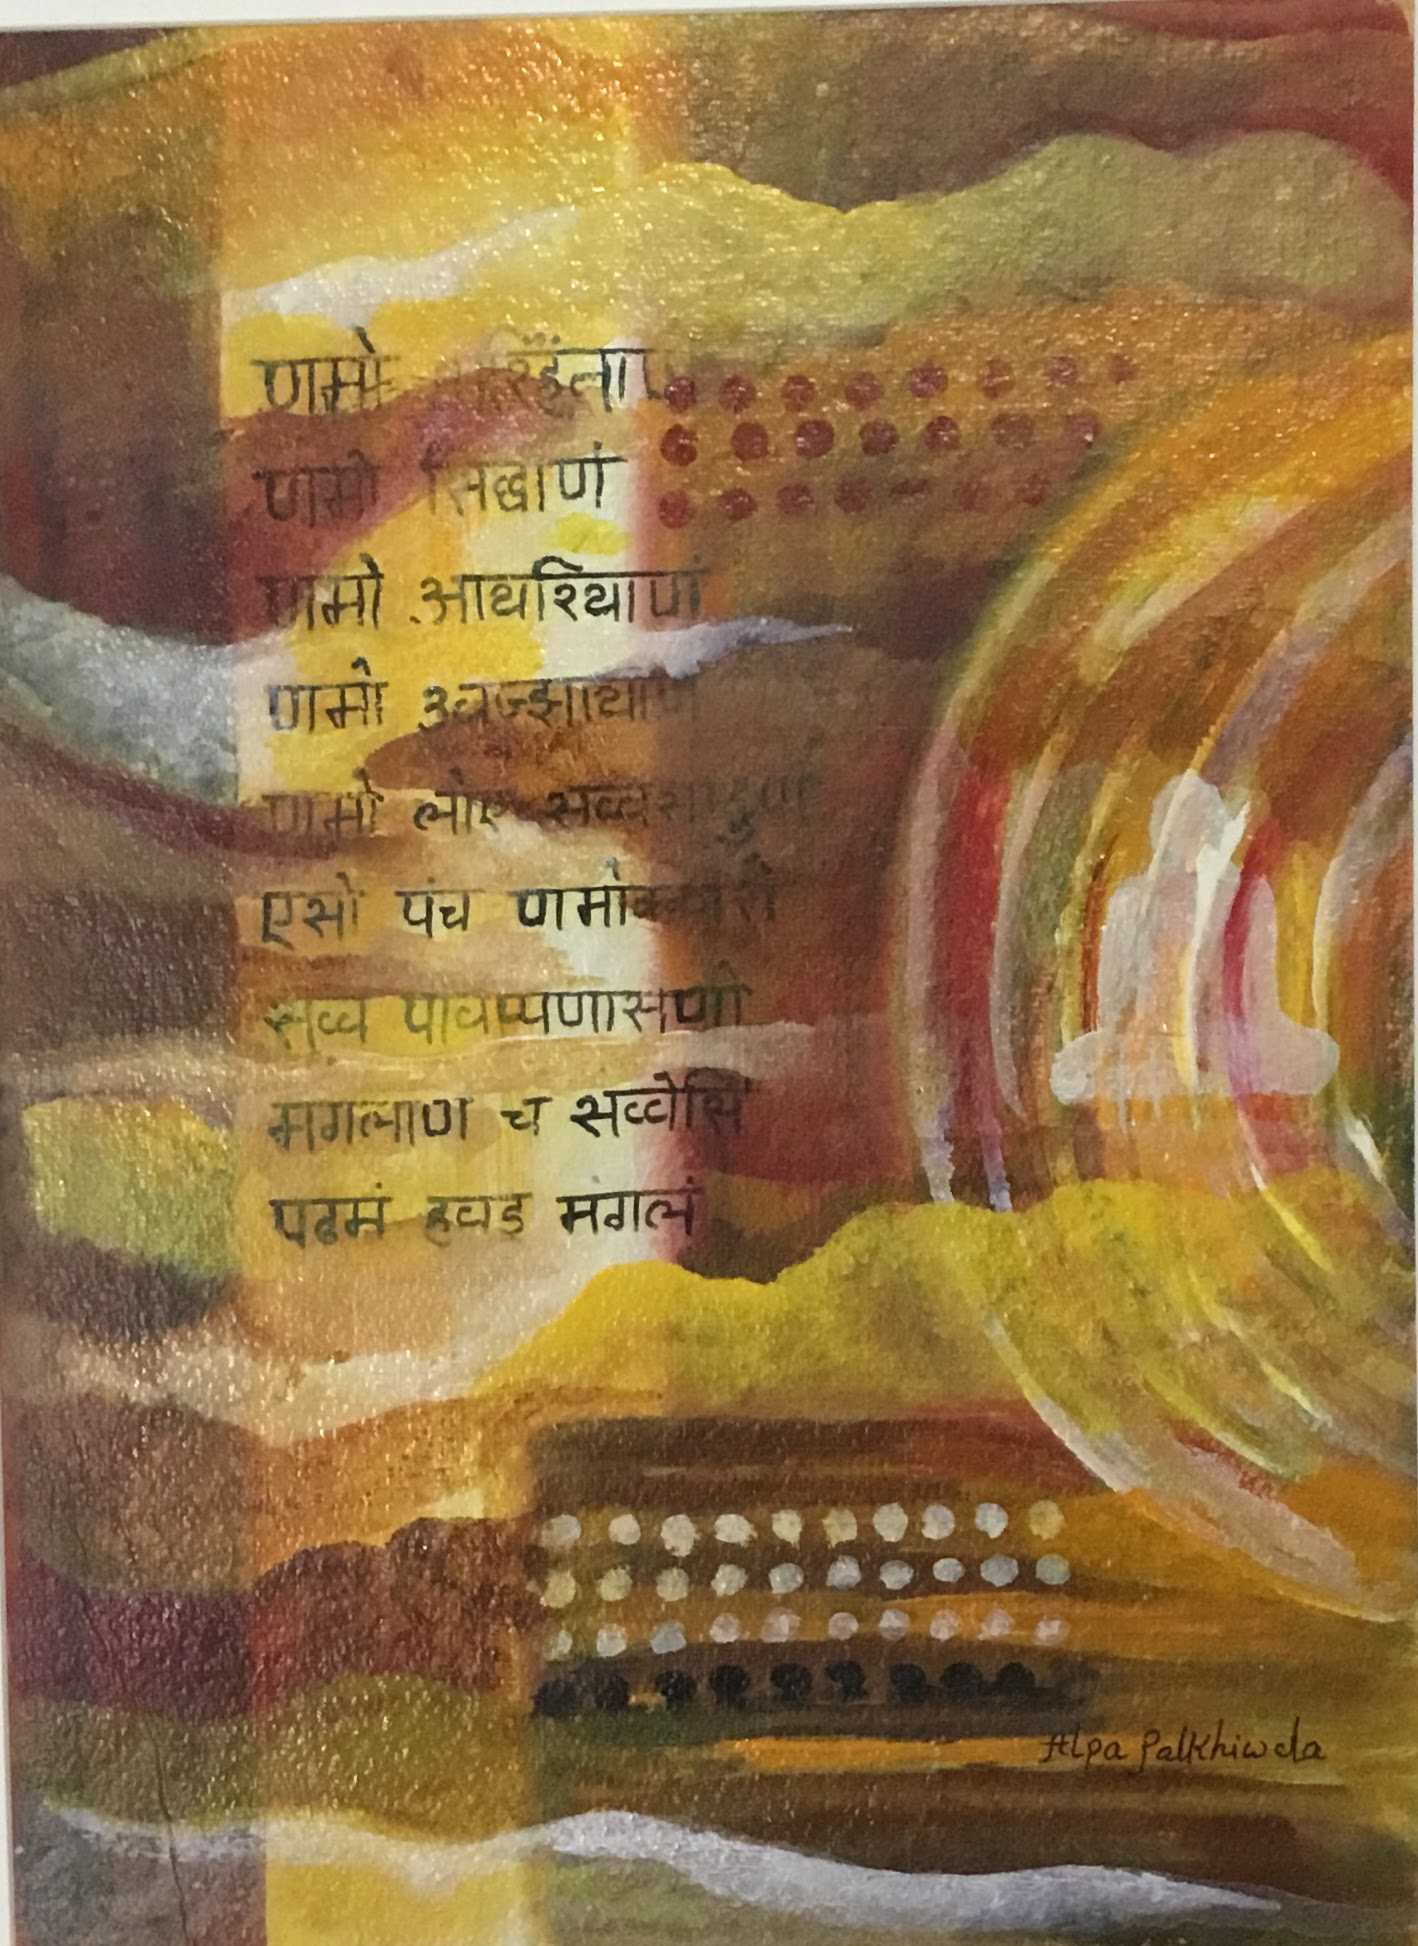 णमो रिहंताण
णमो सिद्धाणं
णमो आयरियाणं
णमो उवज्झायाणं
णमो लोए सव्वसाहुणं
एसो पंच णमोक्कारो
सव्व पावप्पणासणो
मंगलाण च सव्वेसिं
पढमं हवइ मंगलं
Alpa Palkhiwala